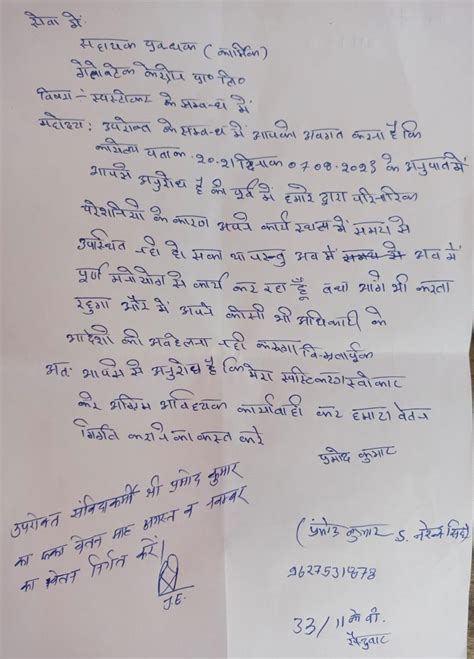 सेवा में
सहायक प्रबन्धक (कार्मिक)
प्रा० लि०
विषय :- स्पस्टीकरण के सम्बन्ध में
महोदय : उपरोक्त के सम्बन्ध में आपको अवगत करना है कि
कार्यालय पत्रांक 20.21 दिनांक 07.08.2023 के अनुपात में
आपसे अनुरोध है की पूर्व में हमारे द्वारा परिवारिक
परेशनियो के कारण अपने कार्य स्थल में समय से
उपस्थित नही हो सका था परन्तु अब में समय से अब में
पूर्ण मनोयोग से कार्य कर रहा हूँ तथा आगे भी करता
रहुगा और में अपने कीसी भी अधिकारी के
आदेशो की अवहेलना नही करुगा विनम्रतापूर्वक
अतः आपसे से अनुरोध है कि मेरा स्पस्टिकरण स्वीकार
कर अग्रिम कार्यवाही कर हमारा वेतन
निर्गत कराने का कस्त करे
प्रमोद कुमार
उपरोक्त संविदाकर्मी श्री प्रमोद कुमार
का रूका वेतन माह अगस्त व सितम्बर
का वेतन निर्गत करें
J.E.
(प्रमोद कुमार S. नरेन्द्र सिंह)
9627531878
33/11 के वी.